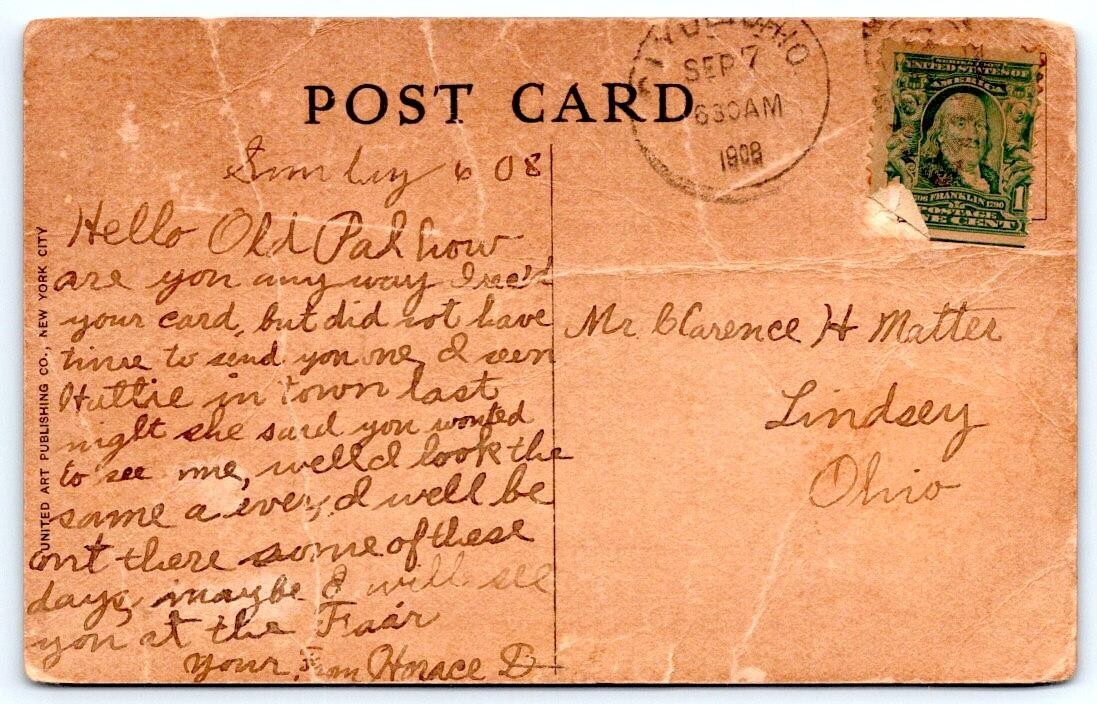 POST CARD
SEP 7
630AM
1908
UNITED STATES OF
AMERICA
FRANKLIN 1790
POSTAGE
E CENT
1
UNITED ART PUBLISHING CO., NEW YORK CITY
6 08
Hello Old Pal how
are you any way I rec'd
your card, but did not have
time to send you one, I seen
Huttie in town last
night she said you wonted
to see me, well I look the
same a ever, I well be
out there some of these
days, maybe I will see
you at the Faár
your, from Horace D
Mr Clarence H Matter
Lindsey
Ohio